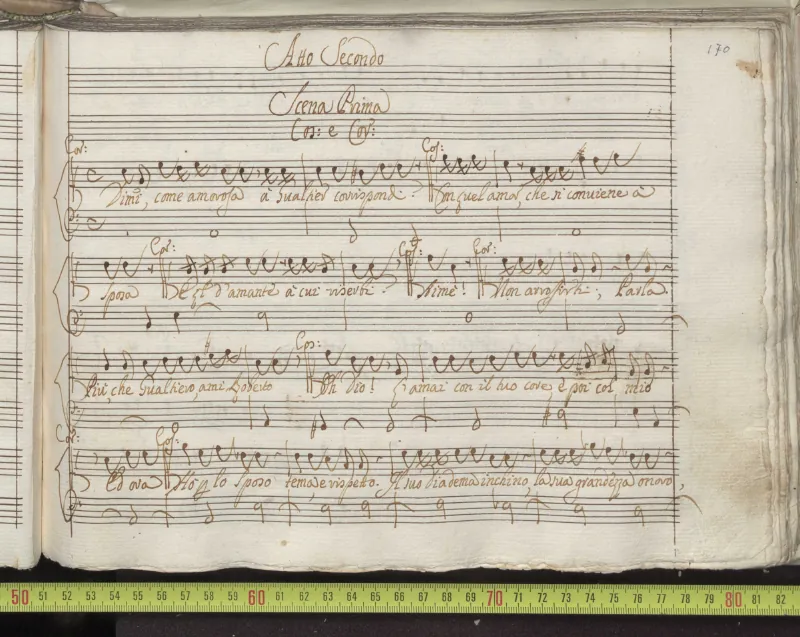 170
Atto Secondo
Scena Prima
Cos: e Cor:
Cor: Cos:
Dimi, come amorosa à Gualtier corrispondi? Con quel amor, che si conviene à
Cor: Cos: Cor:
sposa E d'amante à cui ? Aimè! Non arrossirti; Parla
Cos:
Piu, che Gualtiero ami Roberto Oh Dio! L'amai con il tuo core, e poi col mio
Cor: Cos:
Ed ora Hò p lo sposo tema, e rispetto. Il suo diadema inchino, la sua grandezza onoro,
50 51 52 53 54 55 56 57 58 59 60 61 62 63 64 65 66 67 68 69 70 71 72 73 74 75 76 77 78 79 80 81 82